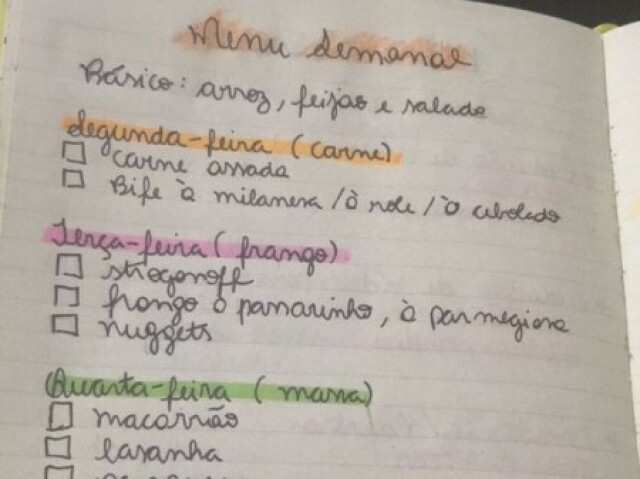 Menu semanal
Básico: arroz, feijão e salada
Segunda-feira (carne)
carne assada
Bife à milanesa /à rolê / à cebolado
Terça-feira (frango)
strogonoff
frango a passarinho, à parmegiana
nuggets
Quarta-feira (massa)
macarrão
lasanha